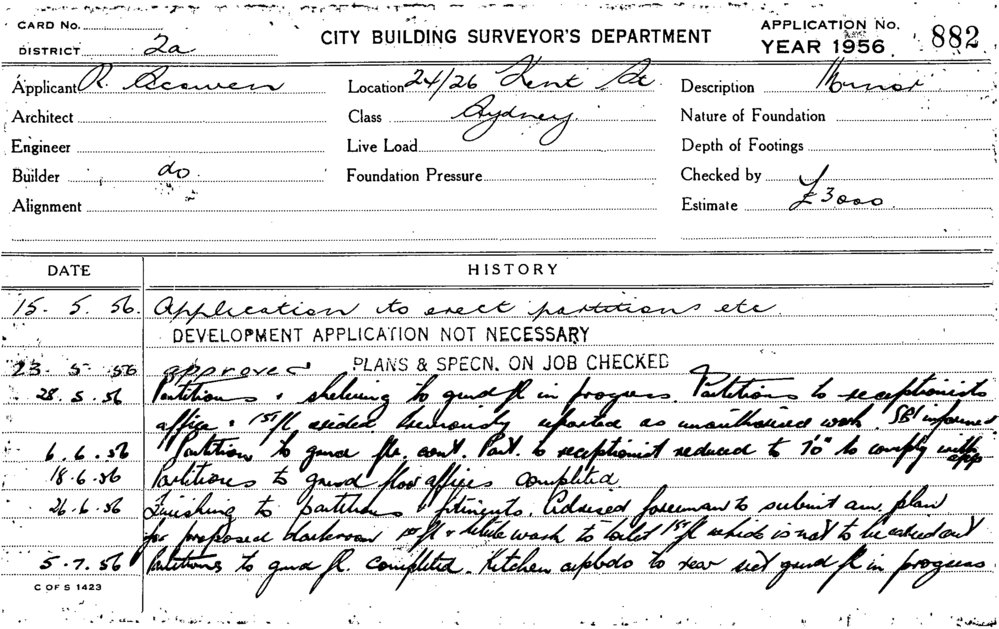 CARD No.
DISTRICT 2a
CITY BUILDING SURVEYOR'S DEPARTMENT
APPLICATION No. 882
YEAR 1956
Applicant R. Location 24/26 Kent St Description Minor
Architect Class Sydney Nature of Foundation
Engineer Live Load Depth of Footings
Builder do Foundation Pressure Checked by
Alignment Estimate £3000
DATE HISTORY
15. 5. 56. Application to erect partitions etc
DEVELOPMENT APPLICATION NOT NECESSARY
23. 5. 56 approved PLANS & SPECN. ON JOB CHECKED
28. 5. 56 Partitions & shelving to grnd fl in progress. Partitions to receptionists
office & 1st fl reported as unauthorised work. SBI informed
6. 6. 56 Partition to grnd flr. cont. Part. to receptionist reduced to 7'0" to comply with app
18. 6. 56 Partitions to grnd floor offices completed
26. 6. 56 Finishing to partitions & fitments. Advised foreman to submit am. plan
for proposed darkroom 1st fl & work to toilet 1st fl which is not to be carried out
5. 7. 56 Partitions to grnd fl. completed. Kitchen cupbds to rear grnd fl in progress
C OF S 1423